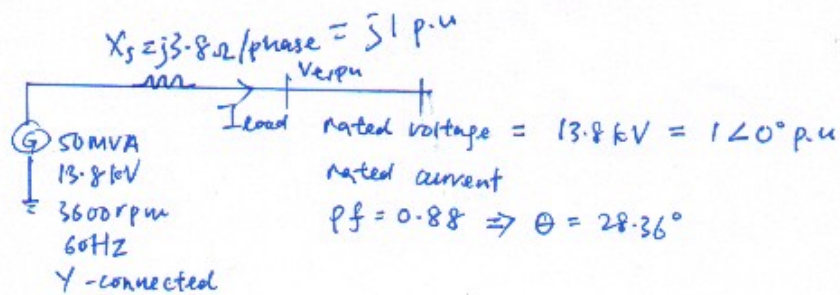 Xs = j3.8Ω/phase = j1 p.u
Iload
G 50MVA
13.8kV
3600rpm
60HZ
Y-connected
rated voltage = 13.8kV = 1∠0° p.u
rated current
pf = 0.88 ⇒ θ = 28.36°